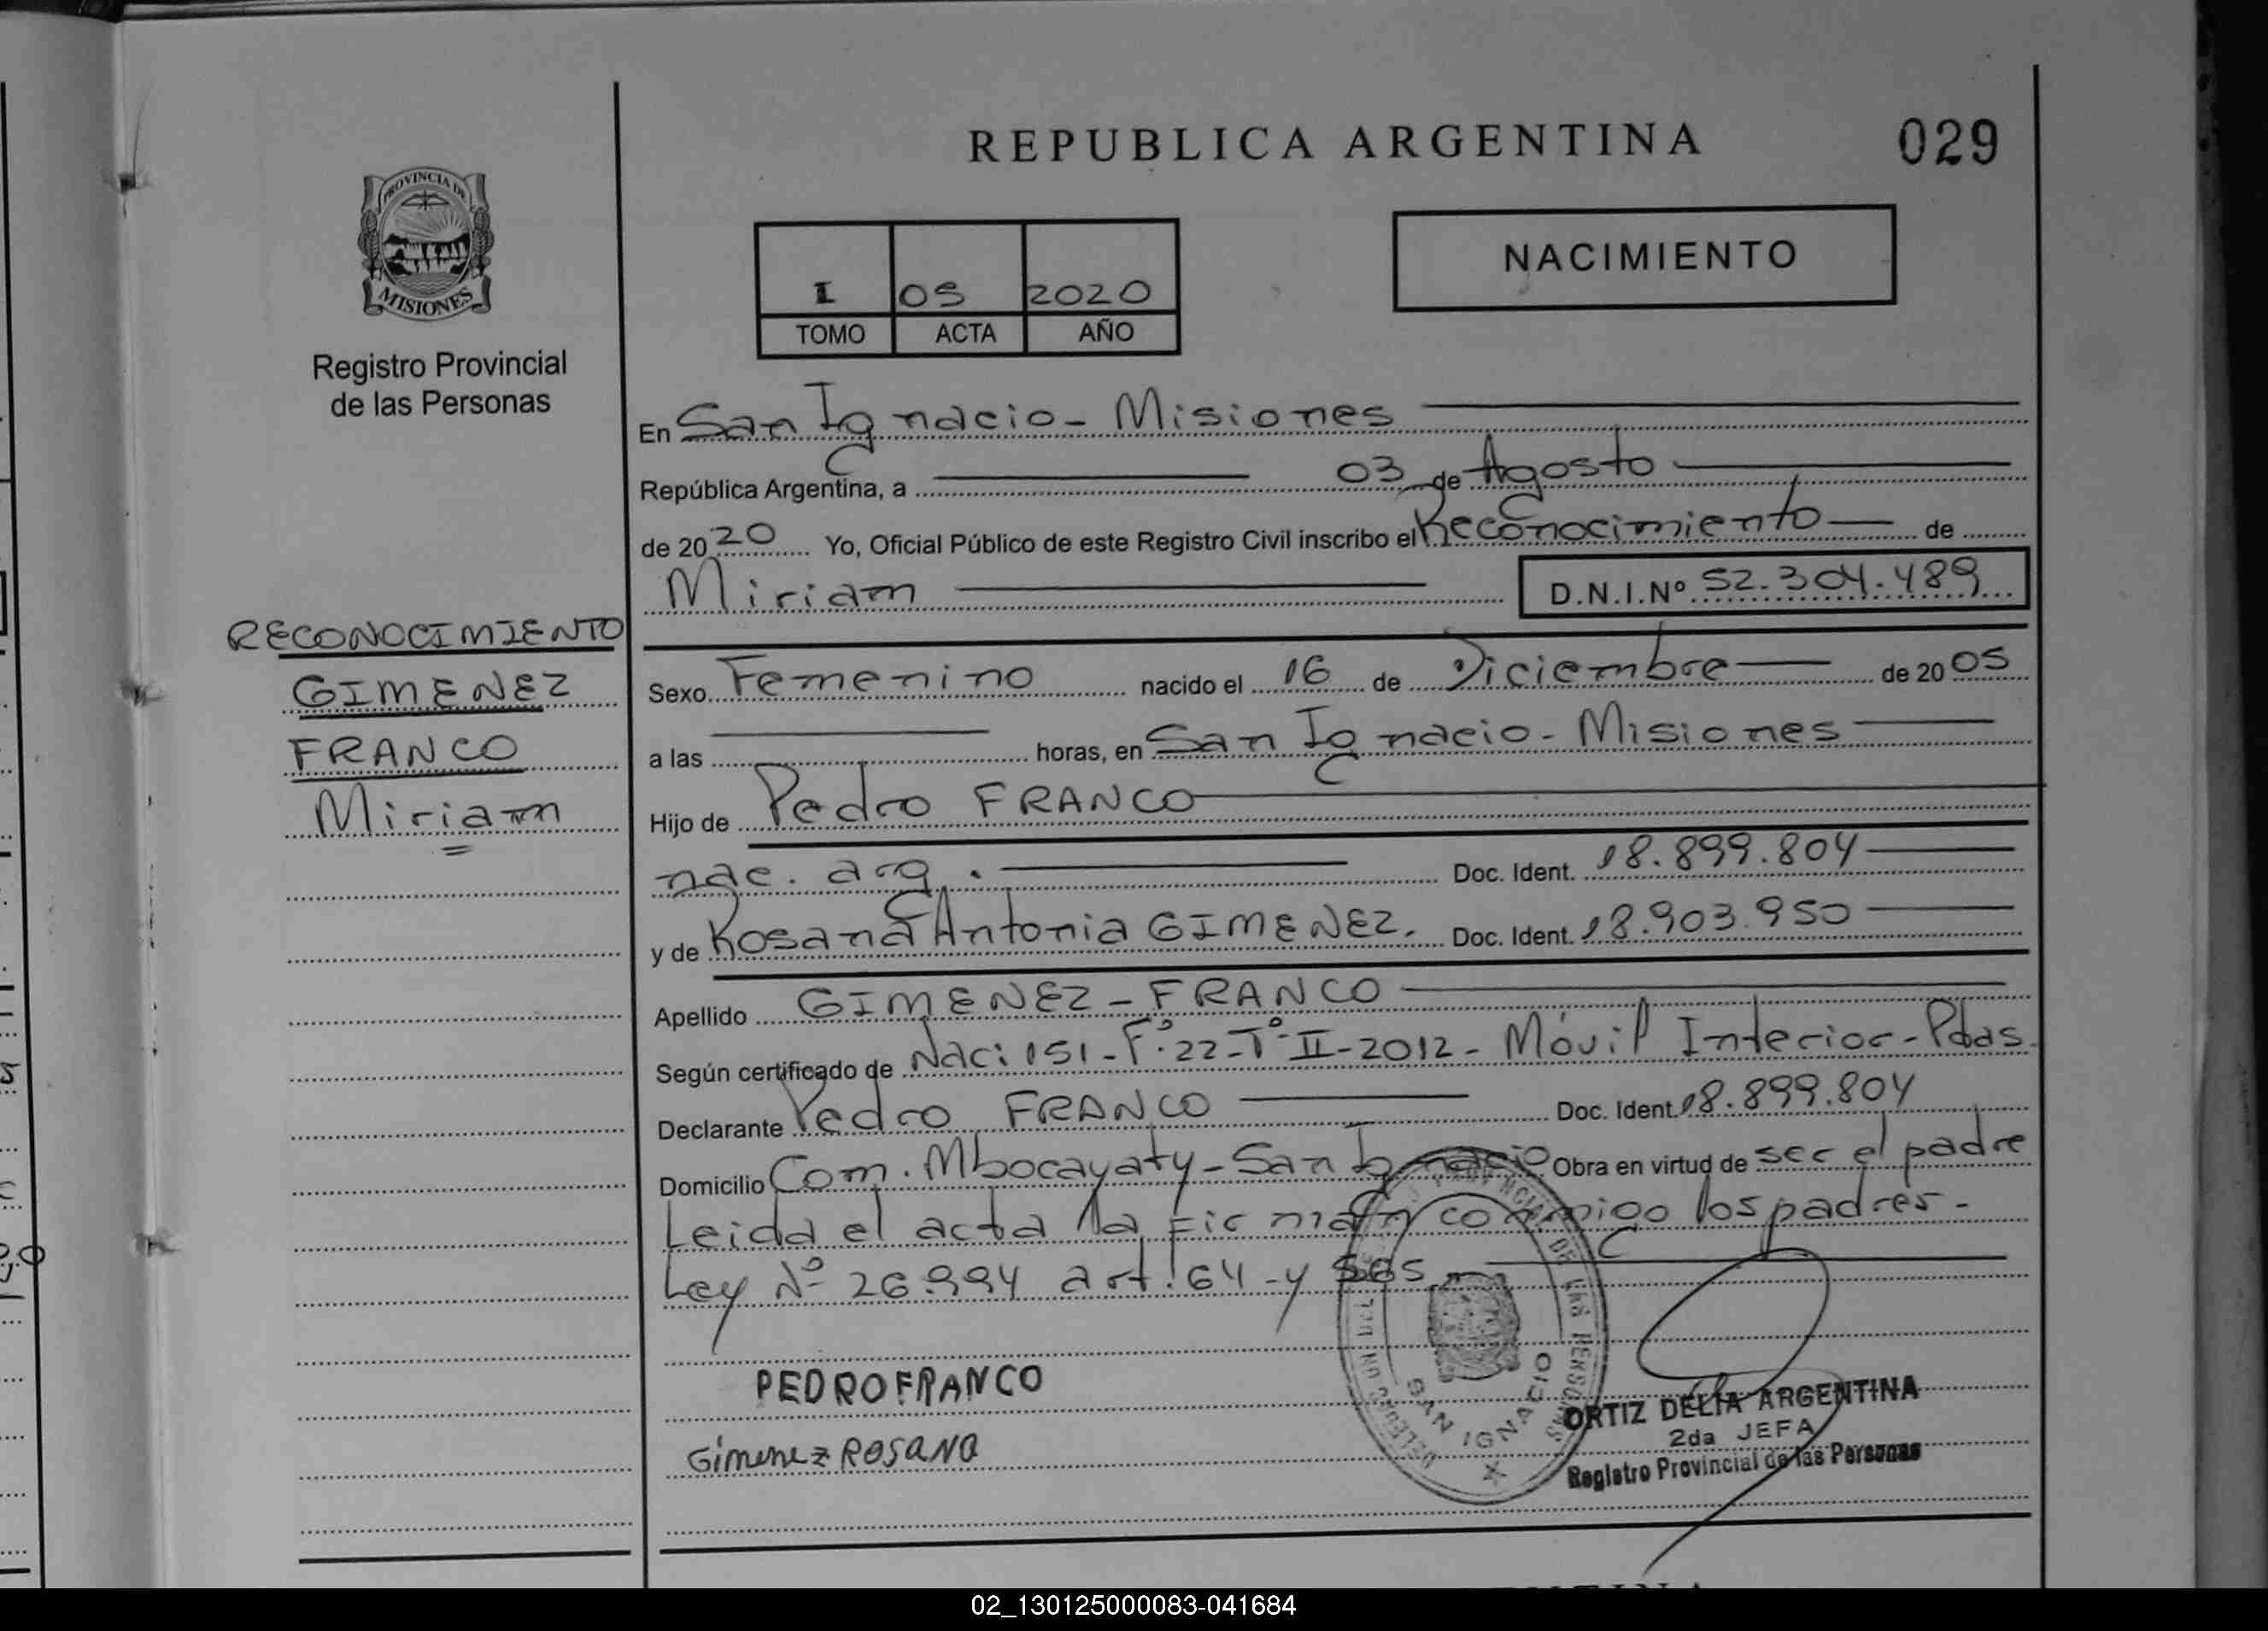 REPUBLICA ARGENTINA
029
PROVINCIA DE
MISIONES
Registro Provincial
de las Personas
NACIMIENTO
I 05 2020
TOMO ACTA AÑO
En San Ignacio - Misiones
República Argentina, a 03 de Agosto
de 2020 Yo, Oficial Público de este Registro Civil inscribo el Reconocimiento de
Miriam D.N.I.Nº 52.304.489
RECONOCIMIENTO
GIMENEZ
FRANCO
Miriam
Sexo Femenino nacido el 16 de Diciembre de 2005
a las horas, en San Ignacio - Misiones
Hijo de Pedro FRANCO
nac. arg. Doc. Ident. 18.899.804
y de Rosana Antonia GIMENEZ. Doc. Ident. 18.903.950
Apellido GIMENEZ - FRANCO
Según certificado de Nac: 151 - Fº 22 - Tº II - 2012 - Móvil Interior - Pdas.
Declarante Pedro FRANCO Doc. Ident. 18.899.804
Domicilio Com. Mbocayaty - San Ignacio Obra en virtud de ser el padre
Leida el acta la Firman conmigo los padres -
Ley Nº 26.994 art. 64 - y
PEDRO FRANCO
Gimenez ROSANA
SAN IGNACIO
ORTIZ DELIA ARGENTINA
2da JEFA
Registro Provincial de las Personas
02_130125000083-041684